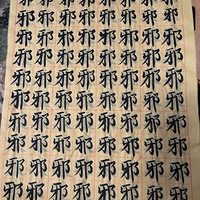 邪邪邪邪邪邪邪邪
邪邪邪邪邪邪邪邪
邪邪邪邪邪邪邪邪
邪邪邪邪邪邪邪邪
邪邪邪邪邪邪邪邪
邪邪邪邪邪邪邪邪
邪邪邪邪邪邪邪邪
邪邪邪邪邪邪邪邪
邪邪邪邪邪邪邪邪
邪邪邪邪邪邪邪邪